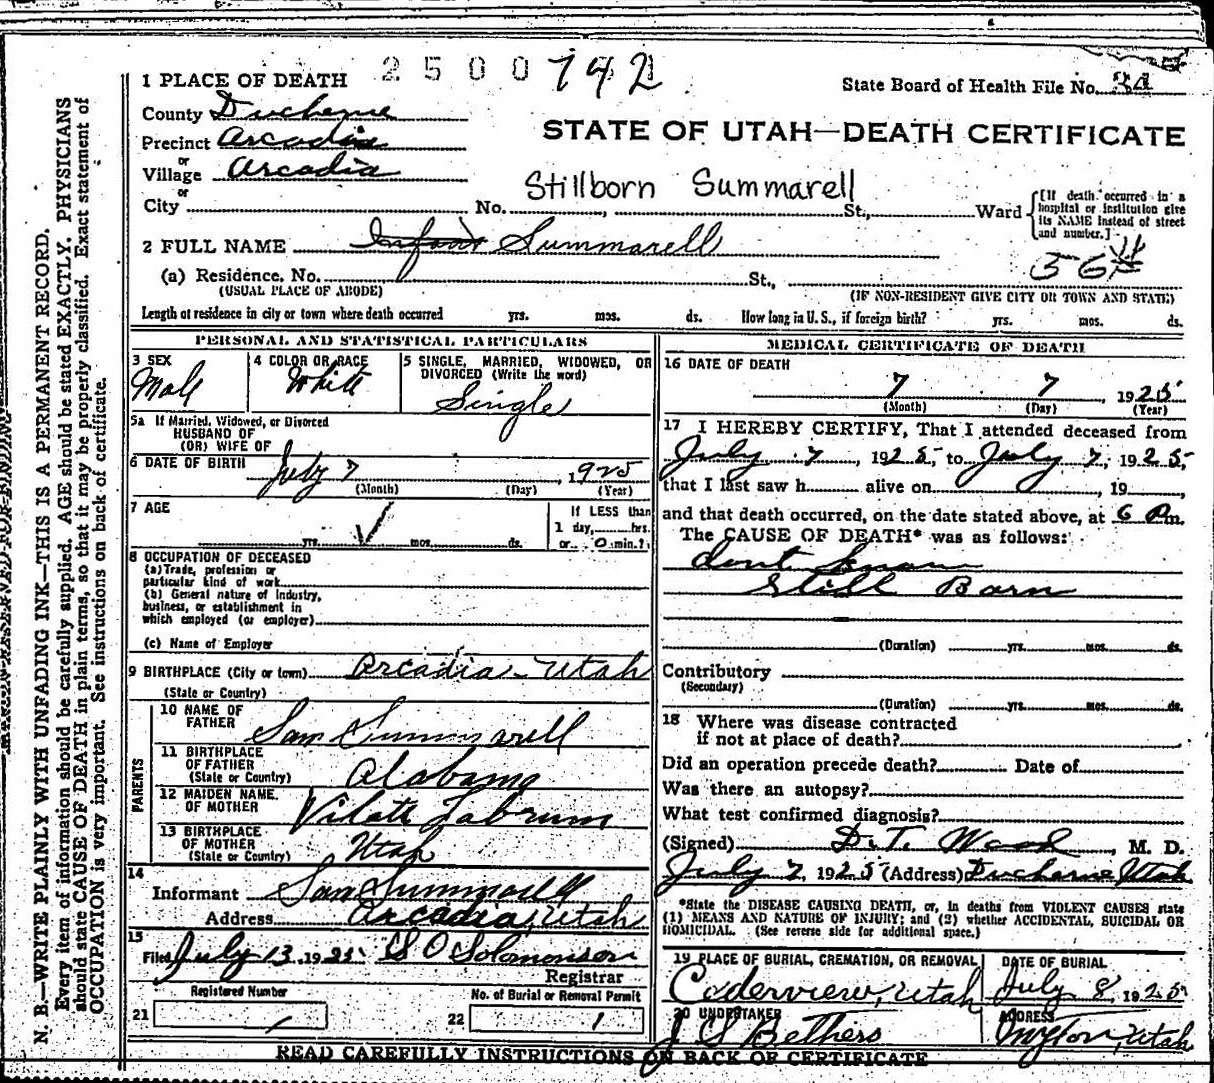 2500 742
1 PLACE OF DEATH
State Board of Health File No. 34
County Duchesne
STATE OF UTAH—DEATH CERTIFICATE
Precinct Arcadia
or
Village Arcadia
or
Stillborn Summarell
City No. , St., Ward
[If death occurred in a
hospital or institution give
its NAME instead of street
and number.]
2 FULL NAME Infant Summarell
(a) Residence. No. St.,
(USUAL PLACE OF ABODE)
(IF NON-RESIDENT GIVE CITY OR TOWN AND STATE)
Length of residence in city or town where death occurred yrs. mos. ds. How long in U. S., if foreign birth? yrs. mos. ds.
PERSONAL AND STATISTICAL PARTICULARS
3 SEX
Male
4 COLOR OR RACE
White
5 SINGLE, MARRIED, WIDOWED, OR
DIVORCED (Write the word)
Single
5a If Married, Widowed, or Divorced
HUSBAND OF
(OR) WIFE OF
6 DATE OF BIRTH
July 7, 1925
(Month) (Day) (Year)
7 AGE
yrs. mos. ds.
If LESS than
1 day, hrs.
or 0 min.?
8 OCCUPATION OF DECEASED
(a) Trade, profession or
particular kind of work
(b) General nature of industry,
business, or establishment in
which employed (or employer)
(c) Name of Employer
9 BIRTHPLACE (City or town) Arcadia - Utah
(State or Country)
PARENTS
10 NAME OF
FATHER Sam Summarell
11 BIRTHPLACE
OF FATHER
(State or Country) Alabama
12 MAIDEN NAME
OF MOTHER Vilate Labrum
13 BIRTHPLACE
OF MOTHER
(State or Country) Utah
14
Informant Sam Summarell
Address Arcadia, Utah
15
Filed July 13, 1925 S O Solomonson
Registrar
Registered Number
21 1
No. of Burial or Removal Permit
22 1
MEDICAL CERTIFICATE OF DEATH
16 DATE OF DEATH
7 7, 1925
(Month) (Day) (Year)
17 I HEREBY CERTIFY, That I attended deceased from
July 7, 1925, to July 7, 1925,
that I last saw h alive on , 19 ,
and that death occurred, on the date stated above, at 6 P m.
The CAUSE OF DEATH* was as follows:
dont know
Still Born
(Duration) yrs. mos. ds.
Contributory
(Secondary)
(Duration) yrs. mos. ds.
18 Where was disease contracted
if not at place of death?
Did an operation precede death? Date of
Was there an autopsy?
What test confirmed diagnosis?
(Signed) D. T. Wood, M. D.
July 7, 1925 (Address) Duchesne Utah
*State the DISEASE CAUSING DEATH, or, in deaths from VIOLENT CAUSES state
(1) MEANS AND NATURE OF INJURY; and (2) whether ACCIDENTAL, SUICIDAL OR
HOMICIDAL. (See reverse side for additional space.)
19 PLACE OF BURIAL, CREMATION, OR REMOVAL
Cederview, Utah
DATE OF BURIAL
July 8, 1925
20 UNDERTAKER
J S Bethers
ADDRESS
Myton, Utah
READ CAREFULLY INSTRUCTIONS ON BACK OF CERTIFICATE
MARGIN RESERVED FOR BINDING
N. B.—WRITE PLAINLY WITH UNFADING INK—THIS IS A PERMANENT RECORD.
Every item of information should be carefully supplied. AGE should be stated EXACTLY. PHYSICIANS
should state CAUSE OF DEATH in plain terms, so that it may be properly classified. Exact statement of
OCCUPATION is very important. See instructions on back of certificate.